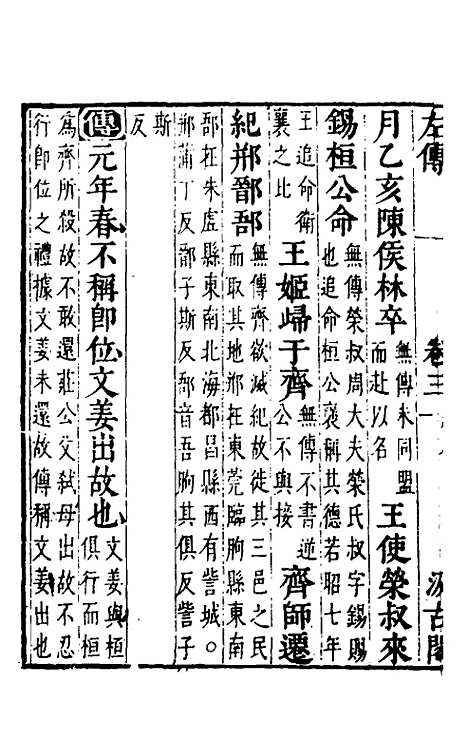 左傳 卷三 汲古閣
月乙亥陳侯林卒 無傳未同盟 而赴以名 王使榮叔來
錫桓公命 無傳榮叔周大夫榮氏叔字錫賜
也追命桓公褒稱其德若昭七年
王追命衛 襄之比 王姬歸于齊 無傳不書逆 公不與接 齊師遷
紀郱鄑郚 無傳齊欲滅紀故徙其三邑之民
而取其地郱在東莞臨朐縣東南
郚在朱虛縣東南北海都昌縣西有訾城。
郱蒲丁反鄑子斯反郚音吾朐其俱反訾子
斯
反
傳元年春不稱卽位文姜出故也 文姜與桓
俱行而桓
爲齊所殺故不敢還莊公父弒母出故不忍
行卽位之禮據文姜未還故傳稱文姜出也